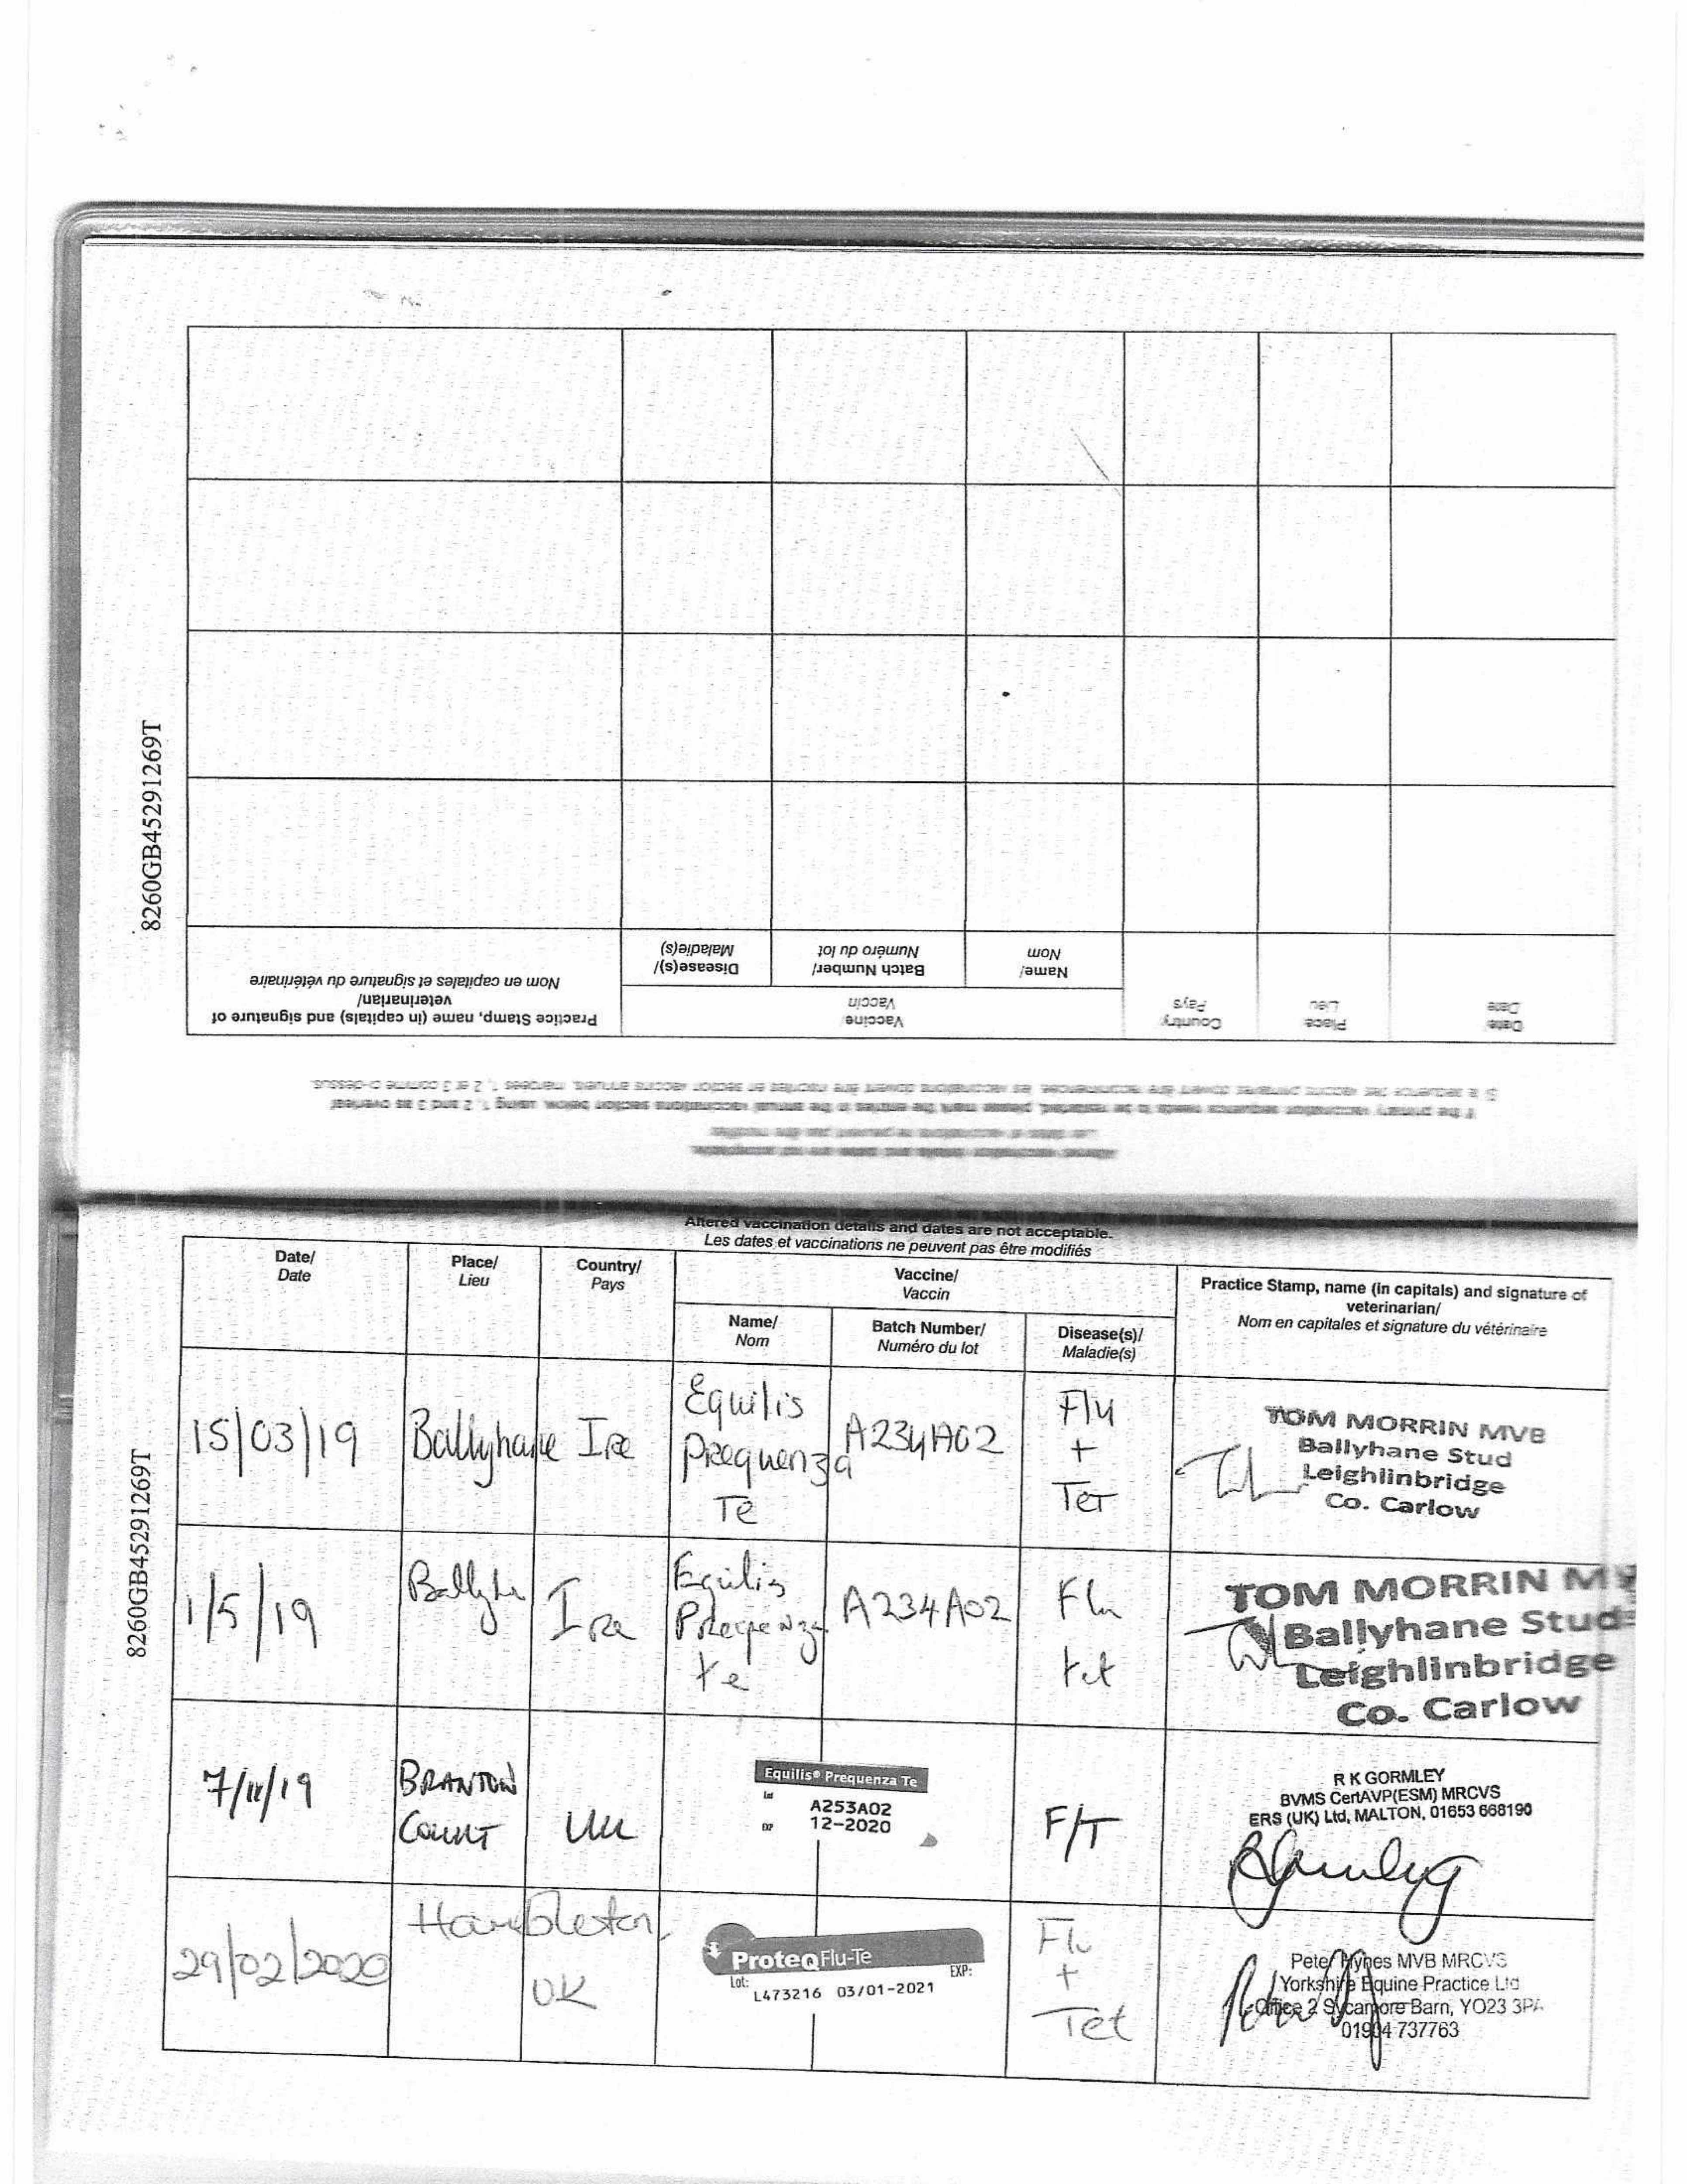 8260GB45291269T
Practice Stamp, name (in capitals) and signature of
veterinarian/
Nom en capitales et signature du vétérinaire
Vaccine/
Vaccin
Disease(s)/
Maladie(s)
Batch Number/
Numéro du lot
Name/
Nom
Country/
Pays
Place/
Lieu
Date/
Date
Altered vaccination details and dates are not acceptable.
Les dates et vaccinations ne peuvent pas être modifiés
If the primary vaccination sequence needs to be restarted, please mark the entries in the annual vaccinations section below, using 1, 2 and 3 as overleaf
Altered vaccination details and dates are not acceptable.
Les dates et vaccinations ne peuvent pas être modifiés
8260GB45291269T
Date/
Date
Place/
Lieu
Country/
Pays
Vaccine/
Vaccin
Name/
Nom
Batch Number/
Numéro du lot
Disease(s)/
Maladie(s)
Practice Stamp, name (in capitals) and signature of
veterinarian/
Nom en capitales et signature du vétérinaire
15/03/19
Ballyhane
Ire
Equilis
Prequenza
Te
A234A02
Flu
+
Tet
TOM MORRIN MVB
Ballyhane Stud
Leighlinbridge
Co. Carlow
1/5/19
Ire
Equilis
Prequenza
te
A234A02
Flu
tet
TOM MORRIN MV
Ballyhane Stud
Leighlinbridge
Co. Carlow
7/11/19
BRANTON
COURT
UK
Equilis® Prequenza Te
Lot
A253A02
EXP 12-2020
F/T
R K GORMLEY
BVMS CertAVP(ESM) MRCVS
ERS (UK) Ltd, MALTON, 01653 668190
29/02/2020
Hambleton,
UK
ProteqFlu-Te
Lot: EXP:
L473216 03/01-2021
Flu
+
Tet
Peter Hynes MVB MRCVS
Yorkshire Equine Practice Ltd
Office 2 Sycamore Barn, YO23 3PA
01904 737763